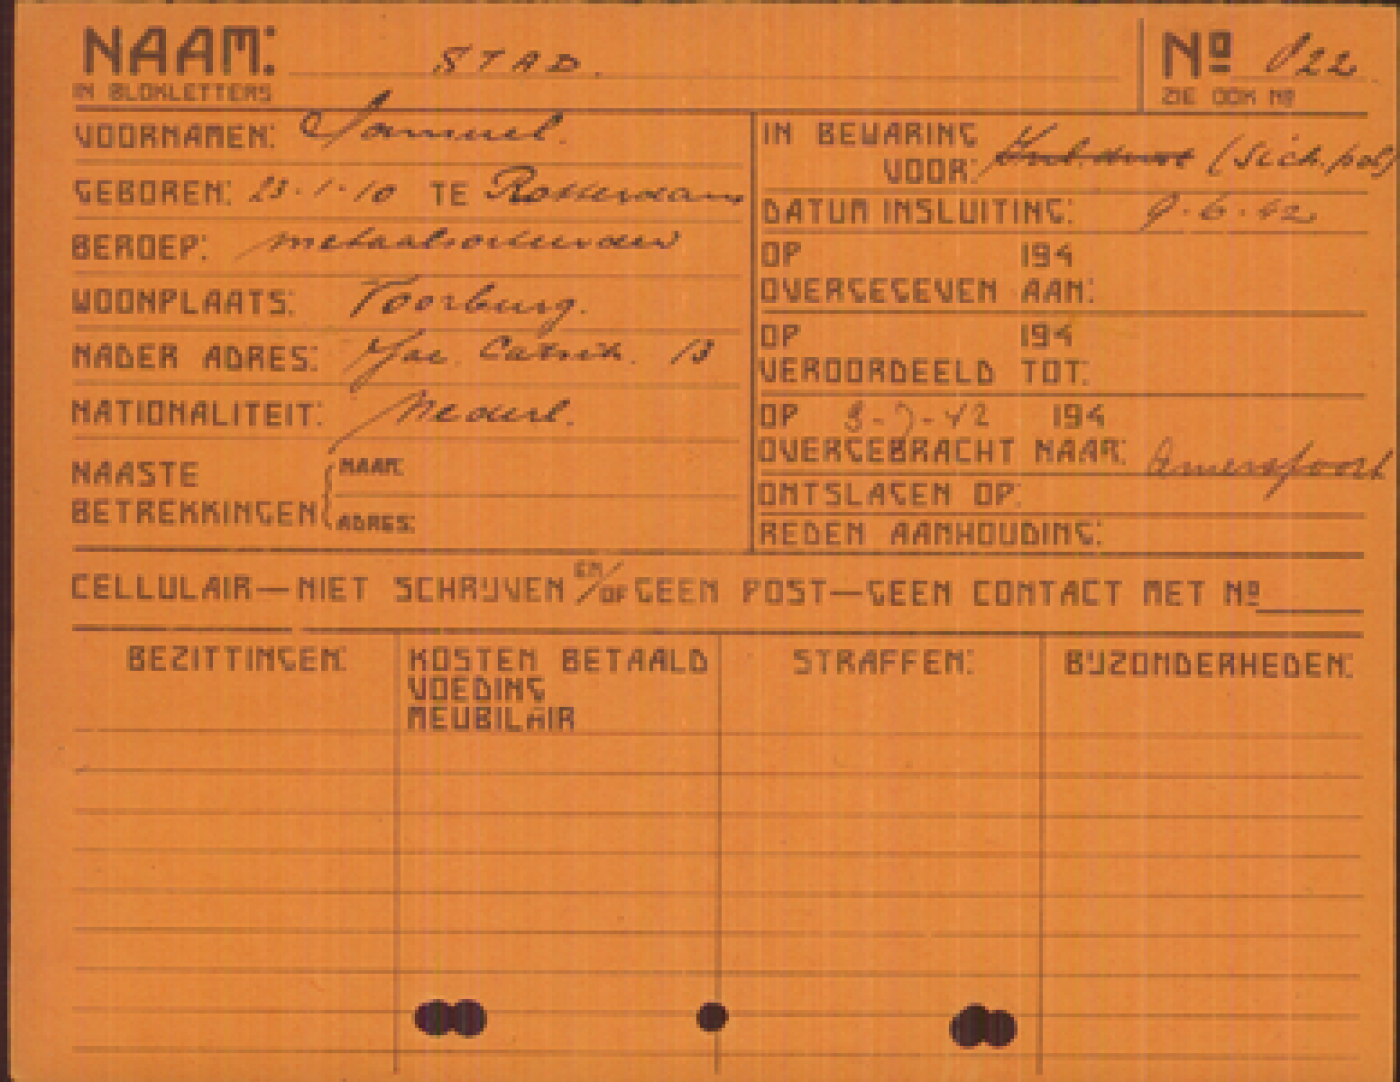 NAAM: STAD.
IN BLOKLETTERS
Nº 122
ZIE OOK Nº
VOORNAMEN: Samuel.
GEBOREN: 23-1-10 TE Rotterdam
BEROEP: metaalsorteerder
WOONPLAATS: Voorburg.
NADER ADRES: Jac. Catsstr. 13
NATIONALITEIT: Nederl.
NAASTE BETREKKINGEN
NAAM:
ADRES:
IN BEWARING
VOOR: (Sich. pol)
DATUM INSLUITING: 9-6-42
OP 194
OVERGEGEVEN AAN:
OP 194
VEROORDEELD TOT:
OP 3-7-42 194
OVERGEBRACHT NAAR: Amersfoort
ONTSLAGEN OP:
REDEN AANHOUDING:
CELLULAIR—NIET SCHRIJVEN EN/OF GEEN POST—GEEN CONTACT MET Nº
BEZITTINGEN:
KOSTEN BETAALD
VOEDING
MEUBILAIR
STRAFFEN:
BIJZONDERHEDEN: